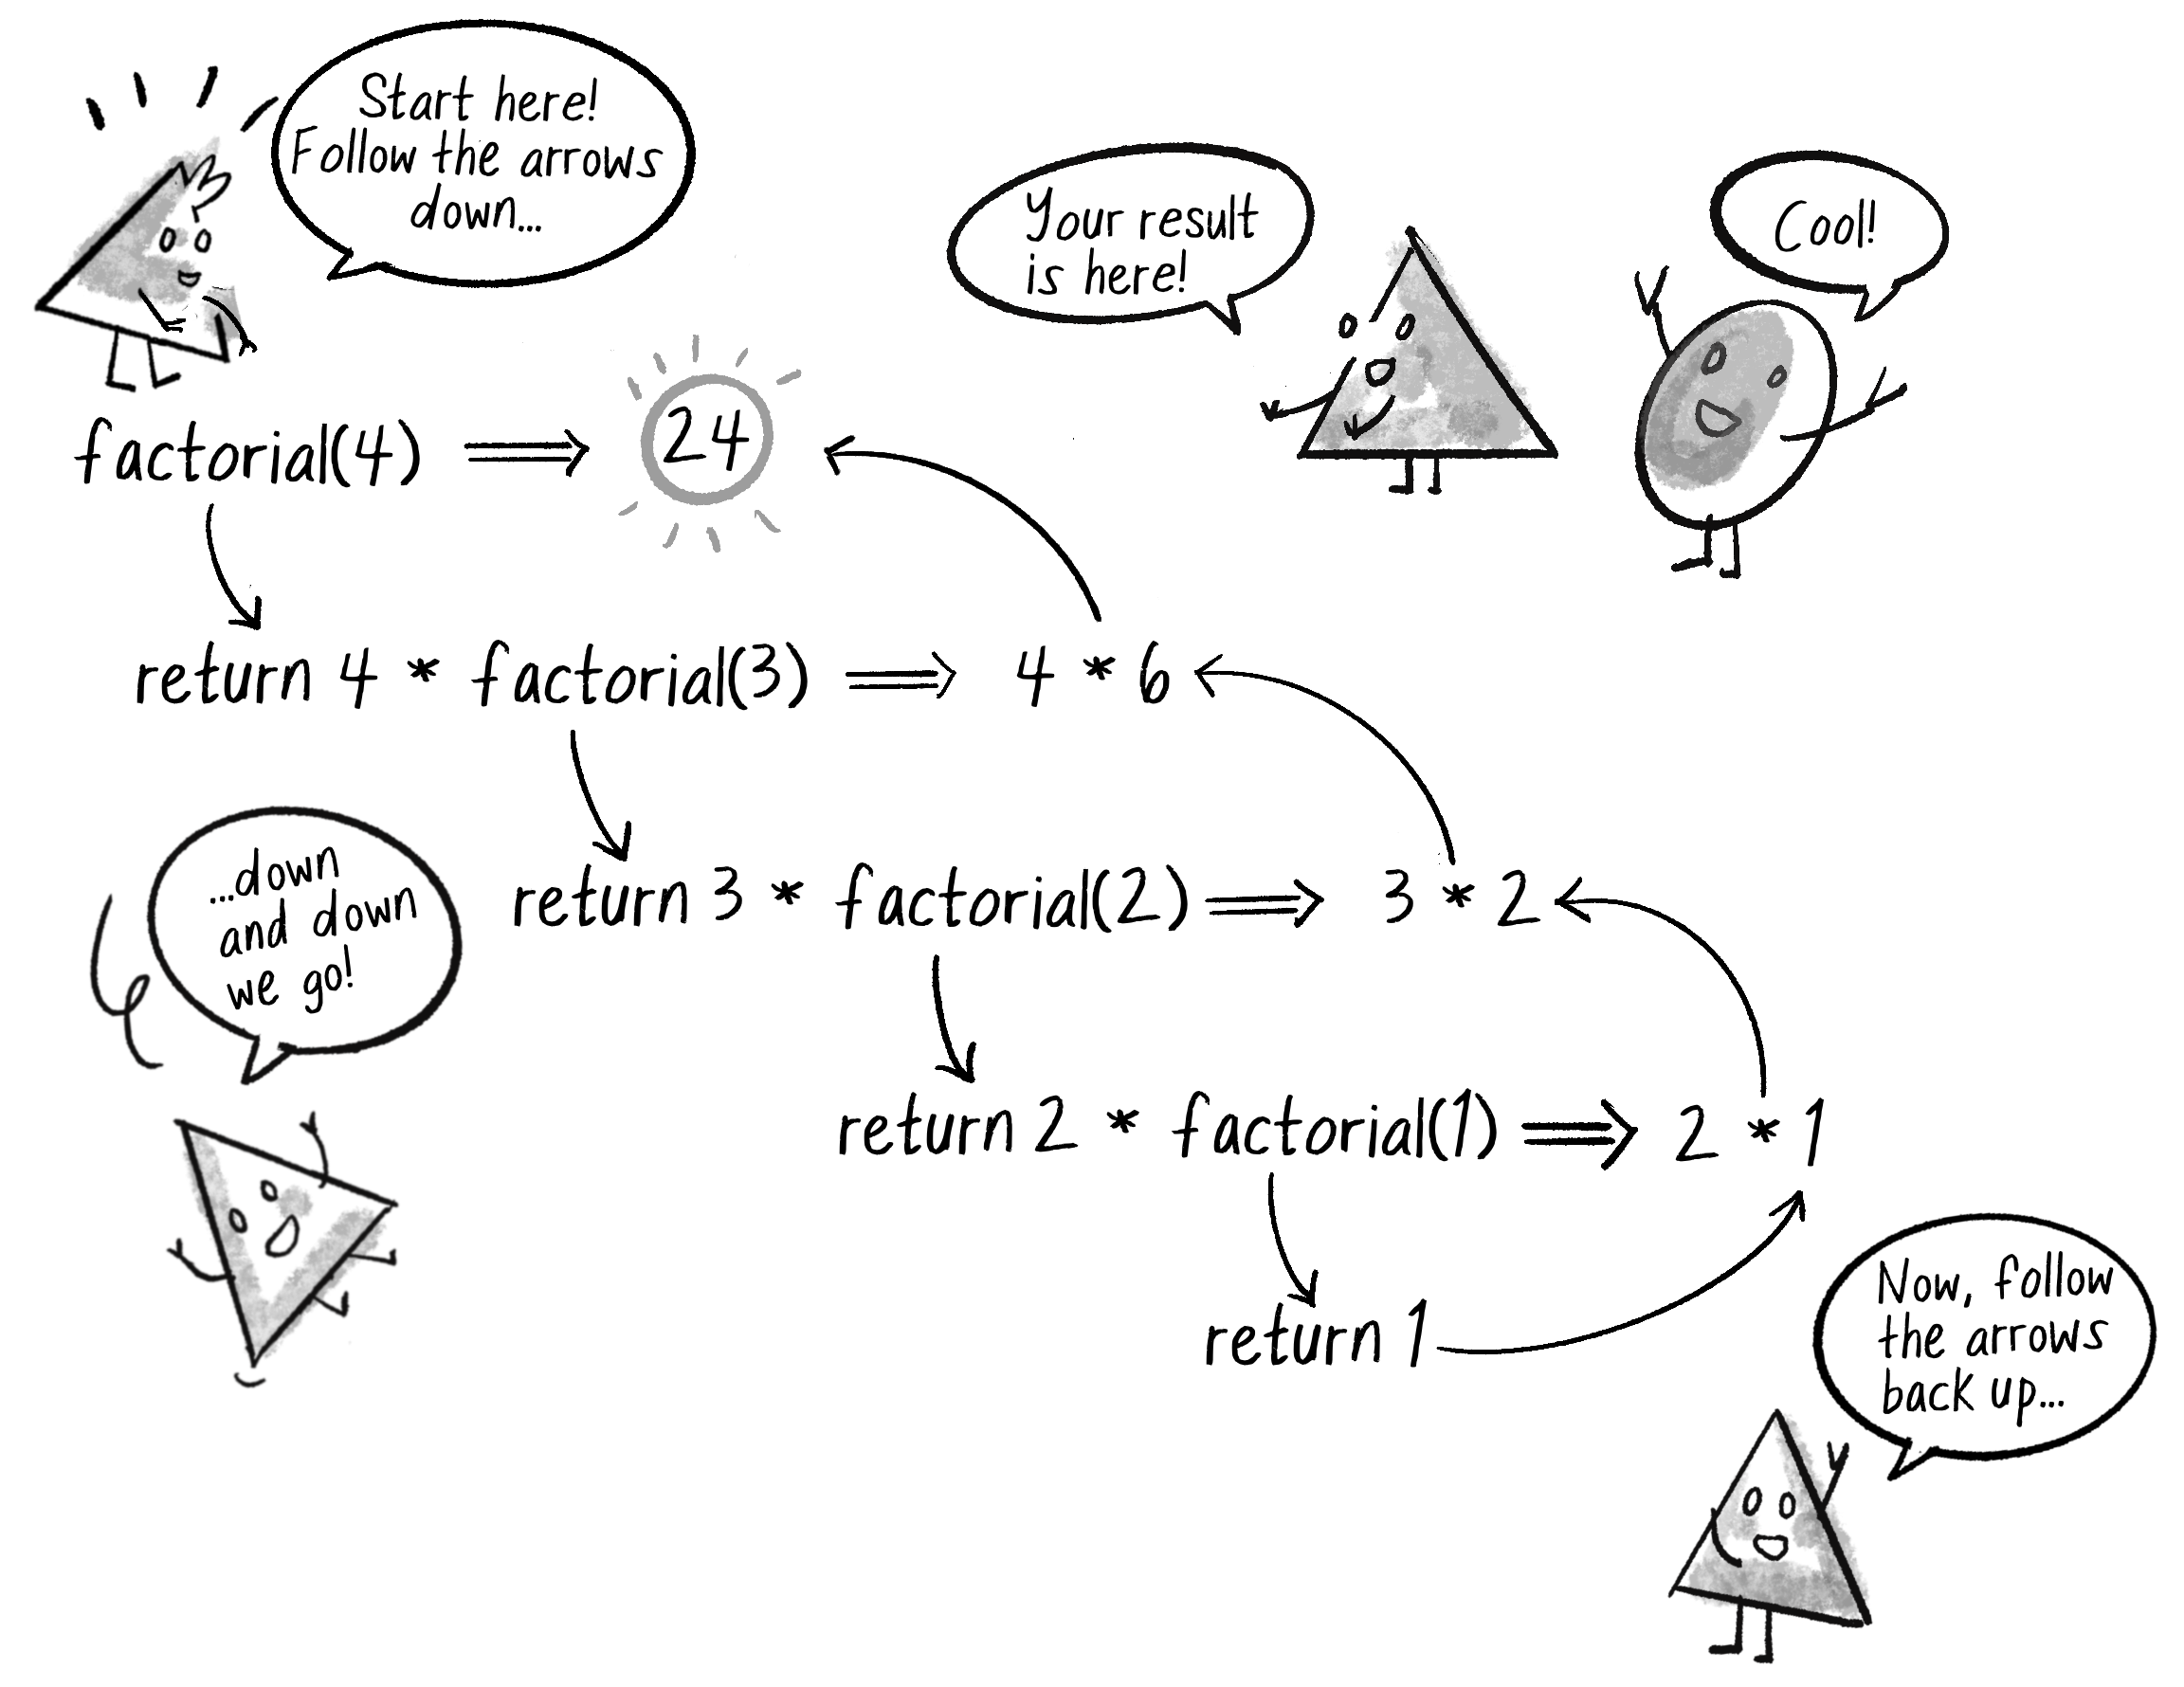 Start here!
Follow the arrows
down...
Your result
is here!
Cool!
factorial(4) ⟹ 24
return 4 * factorial(3) ⟹ 4 * 6
...down
and down
we go!
return 3 * factorial(2) ⟹ 3 * 2
return 2 * factorial(1) ⟹ 2 * 1
return 1
Now, follow
the arrows
back up...